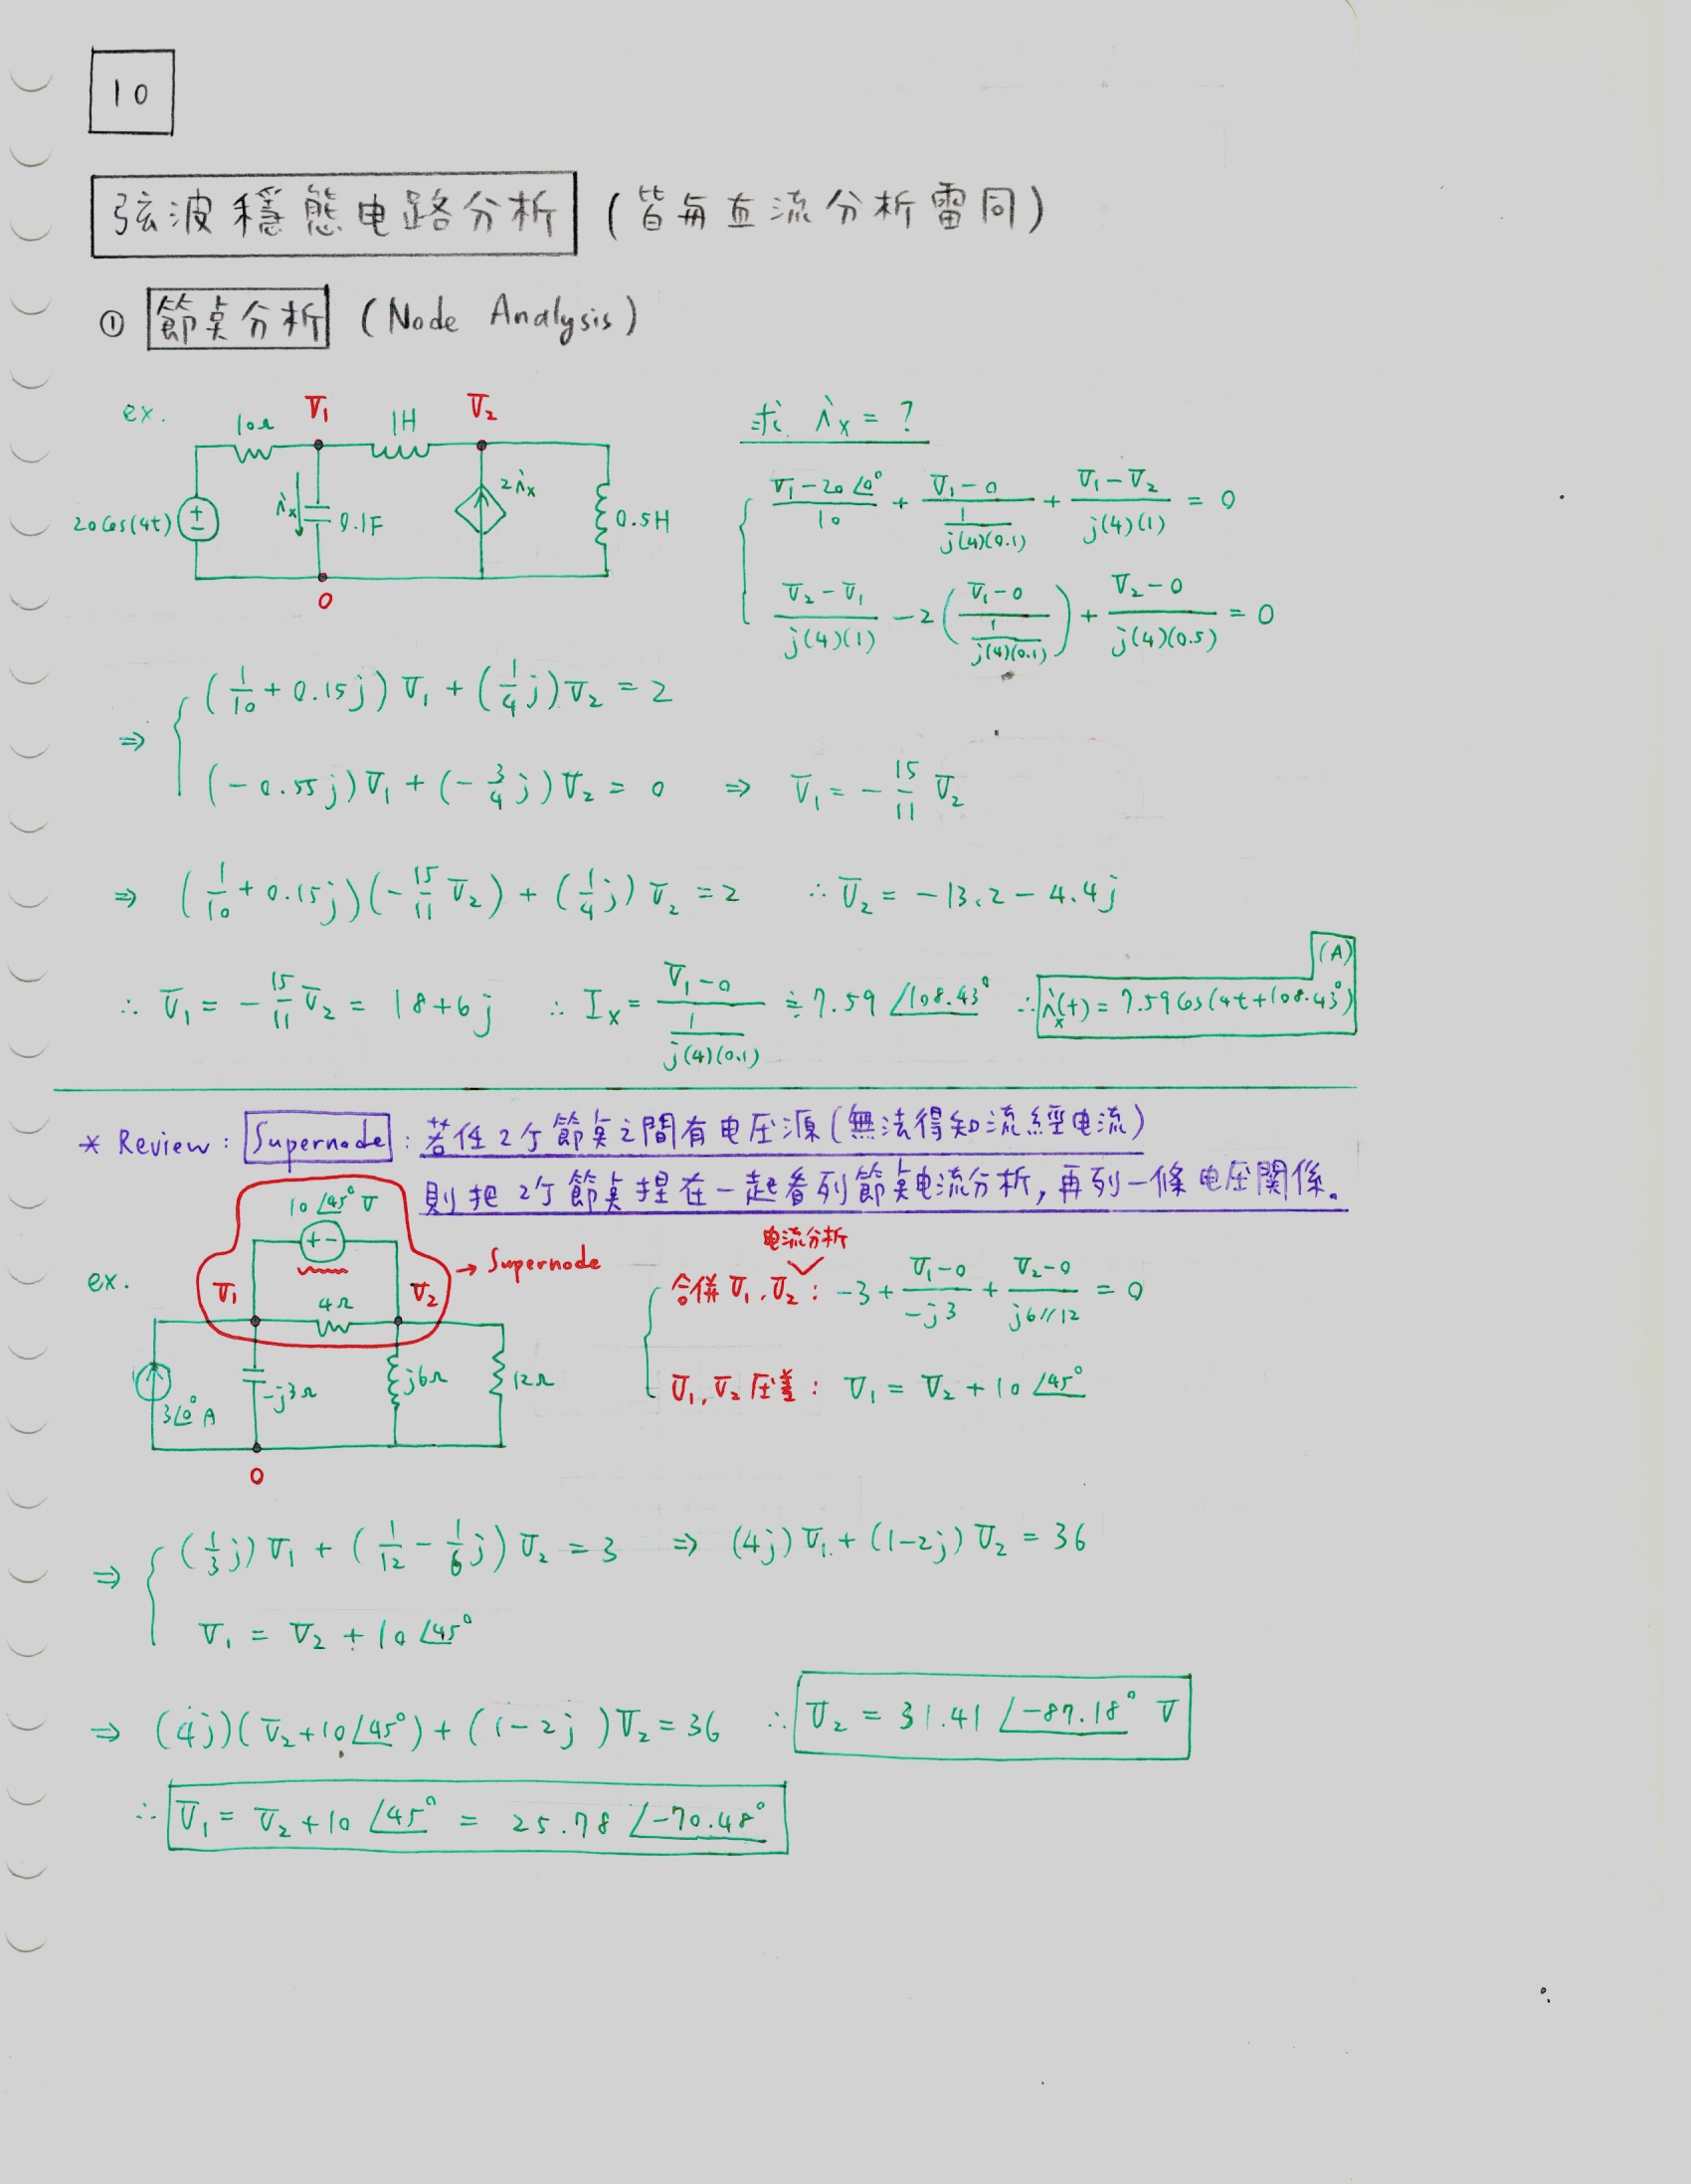 10
弦波穩態电路分析 (皆與直流分析雷同)
① 節點分析 (Node Analysis)
ex. 10Ω V₁ 1H V₂
20cos(4t) + - iₓ 0.1F 2iₓ 0.5H
0
求 iₓ = ?
(V₁-20∠0°)/10 + (V₁-0)/(1/(j(4)(0.1))) + (V₁-V₂)/(j(4)(1)) = 0
(V₂-V₁)/(j(4)(1)) - 2((V₁-0)/(1/(j(4)(0.1)))) + (V₂-0)/(j(4)(0.5)) = 0
⇒ (1/10 + 0.15j) V₁ + (1/4 j) V₂ = 2
(-0.55j) V₁ + (-3/4 j) V₂ = 0 ⇒ V₁ = -15/11 V₂
⇒ (1/10 + 0.15j)(-15/11 V₂) + (1/4 j) V₂ = 2 ∴ V₂ = -13.2 - 4.4j
∴ V₁ = -15/11 V₂ = 18+6j ∴ Iₓ = (V₁-0)/(1/(j(4)(0.1))) ≑ 7.59 ∠108.43° ∴ iₓ(t) = 7.59 cos(4t+108.43°) (A)
* Review : Supernode : 若任2个節點之間有电压源(無法得知流經电流)
則把2个節點捏在一起看列節點电流分析, 再列一條电压關係。
ex. 10∠45° V
+ - → Supernode
V₁ 4Ω V₂
3∠0° A -j3Ω j6Ω 12Ω
0
电流分析
合併 V₁, V₂ : -3 + (V₁-0)/(-j3) + (V₂-0)/(j6//12) = 0
V₁, V₂ 压差 : V₁ = V₂ + 10∠45°
⇒ (1/3 j) V₁ + (1/12 - 1/6 j) V₂ = 3 ⇒ (4j) V₁ + (1-2j) V₂ = 36
V₁ = V₂ + 10∠45°
⇒ (4j)(V₂+10∠45°) + (1-2j) V₂ = 36 ∴ V₂ = 31.41 ∠-87.18° V
∴ V₁ = V₂+10∠45° = 25.78 ∠-70.48°